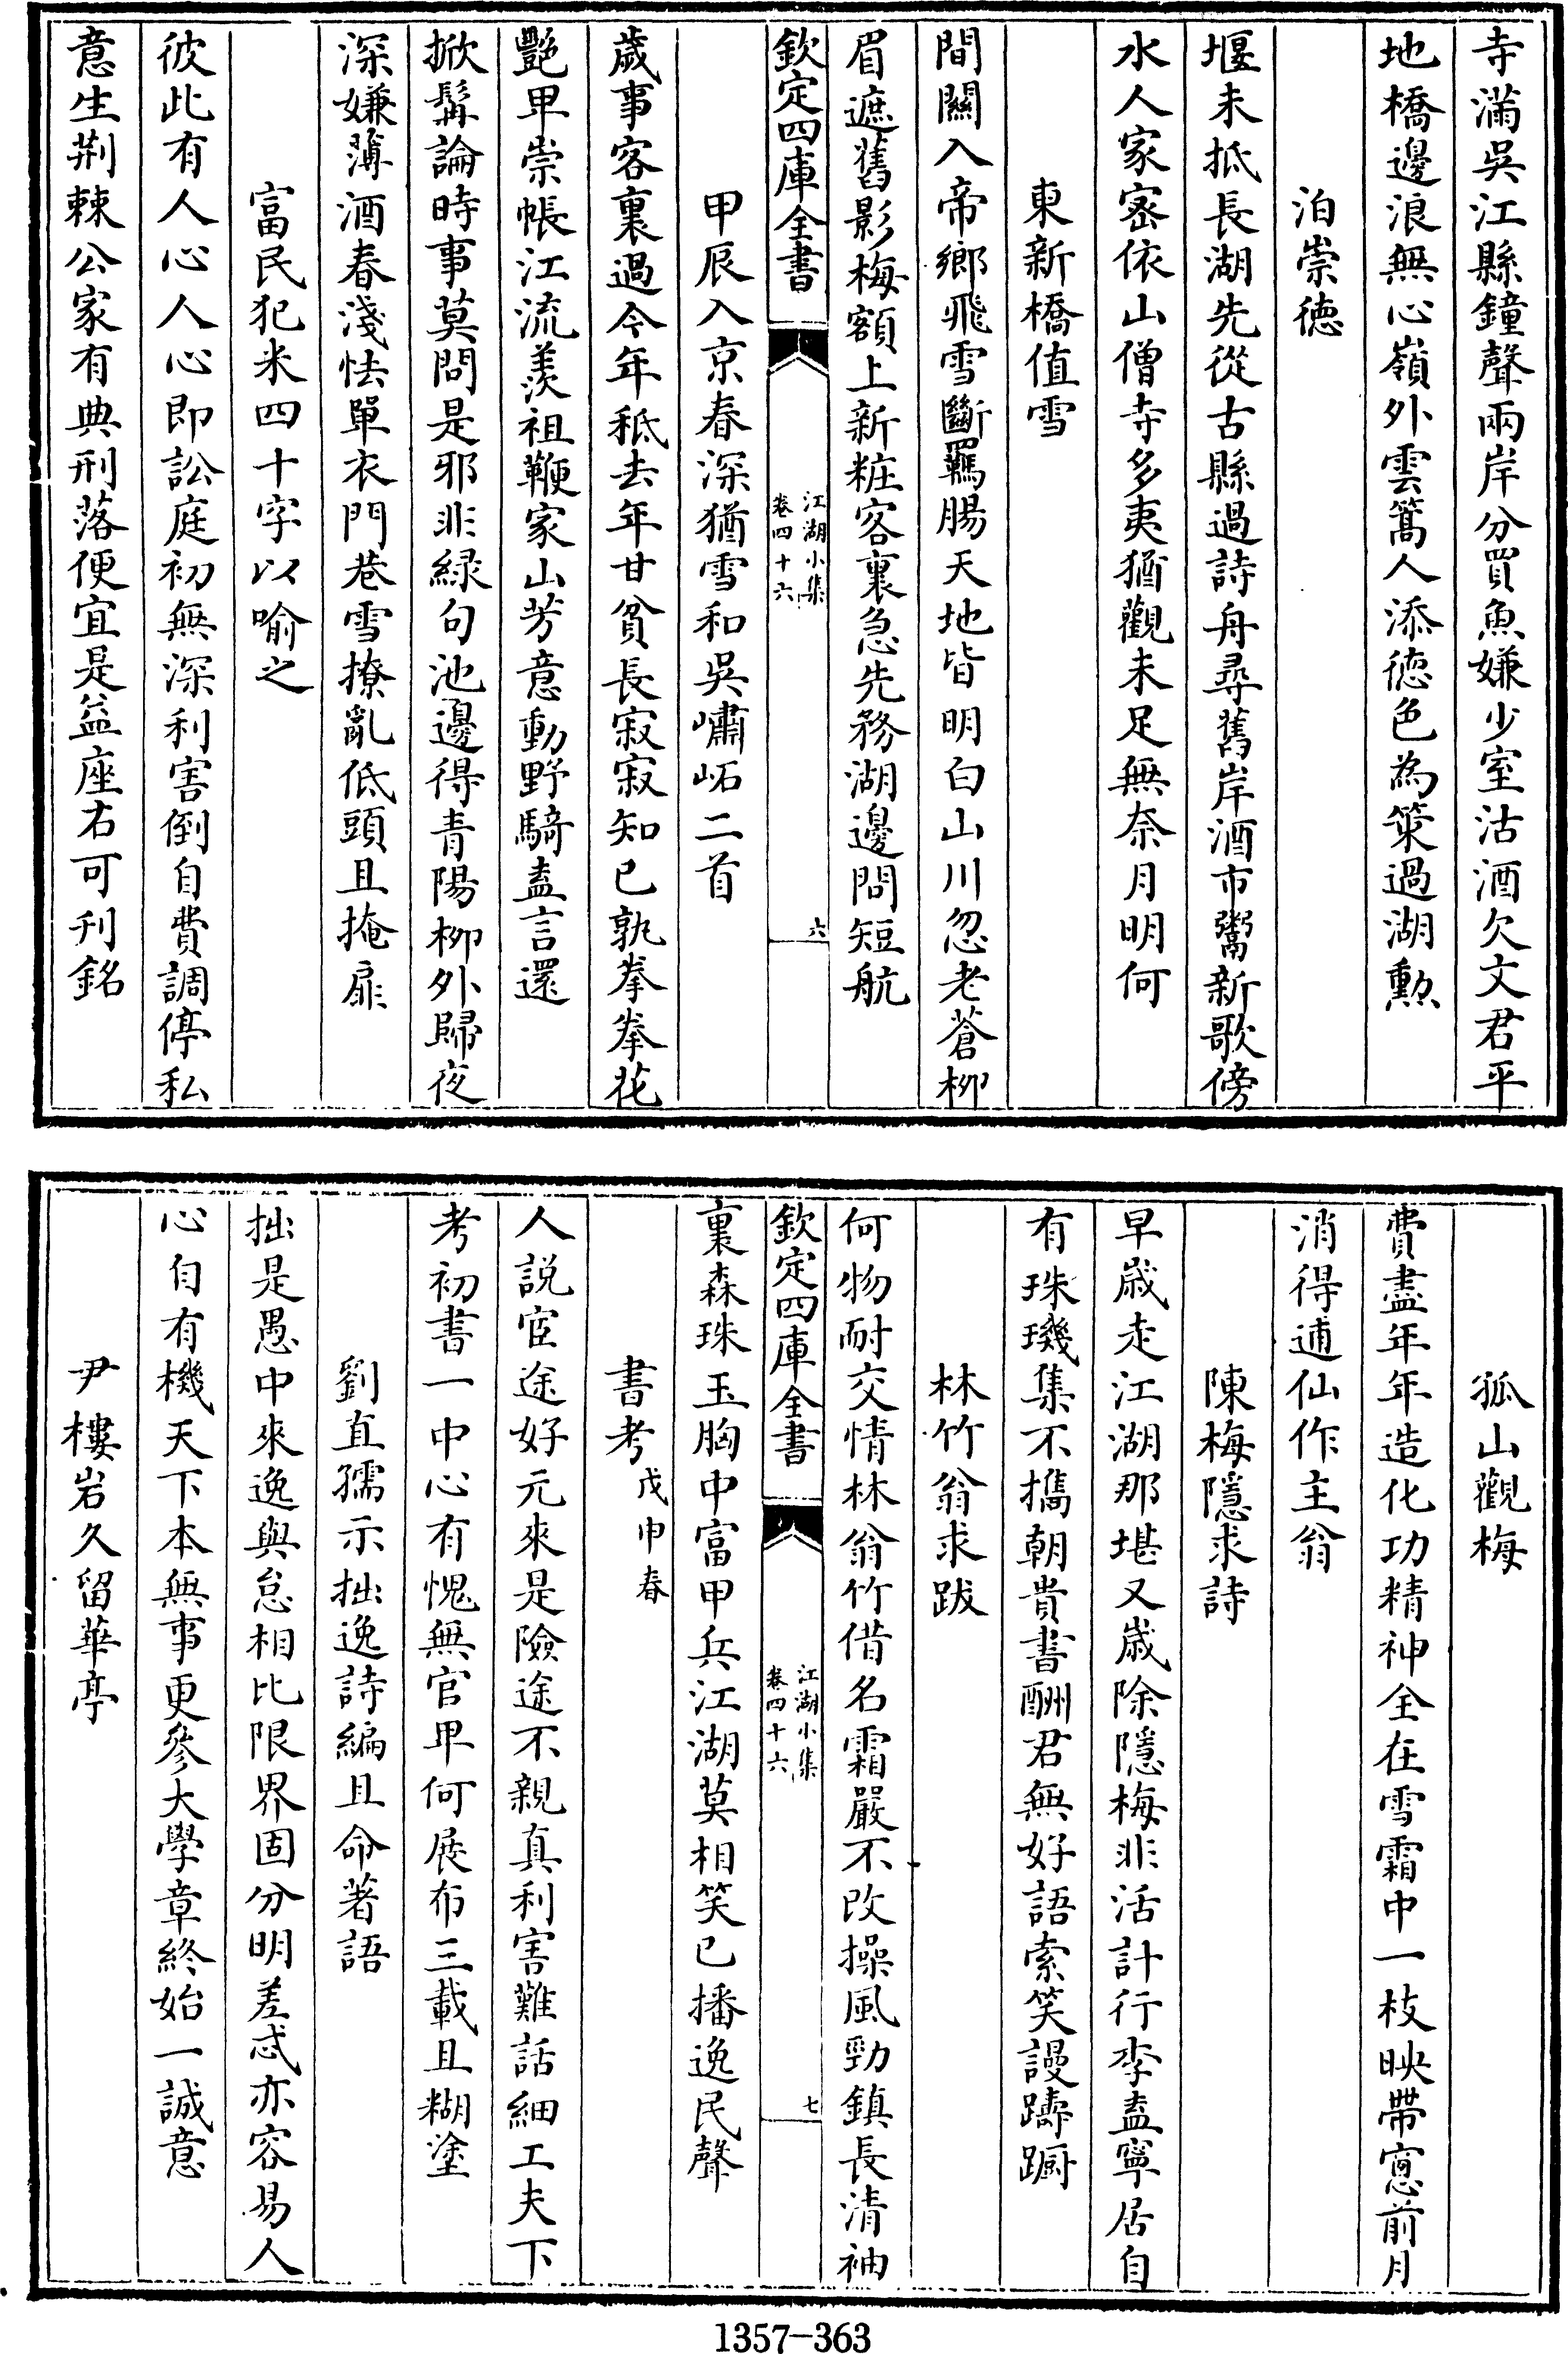 寺滿吳江縣鐘聲兩岸分買魚嫌少室沽酒欠文君平
地橋邊浪無心嶺外雲篙人添徳色為策過湖勲
泊崇徳
堰未抵長湖先從古縣過詩舟尋舊岸酒市鬻新歌傍
水人家宻依山僧寺多夷猶觀未足無奈月明何
東新橋值雪
間關入帝鄉飛雪斷羈腸天地皆明白山川忽老蒼栁
眉遮舊影梅額上新粧客裏急先務湖邊問短航
欽定四庫全書
江湖小集
卷四十六
六
甲辰入京春深猶雪和吳嘯岩二首
歲事客裏過今年秪去年甘貧長寂寂知已孰拳拳花
艷卑崇帳江流羨祖鞭家山芳意動野騎盍言還
掀髯論時事莫問是邪非緑句池邊得青陽栁外歸夜
深嫌薄酒春淺怯單衣門巷雪撩亂低頭且掩扉
富民犯米四十字以喻之
彼此有人心人心即訟庭初無深利害倒自費調停私
意生荆棘公家有典刑落便宜是益座右可刋銘
孤山觀梅
費盡年年造化功精神全在雪霜中一枝映帶窻前月
消得逋仙作主翁
陳梅隱求詩
早嵗走江湖那堪又嵗除隱梅非活計行李盍寧居自
有珠璣集不攜朝貴書酬君無好語索笑謾躊蹰
林竹翁求跋
何物耐交情林翁竹借名霜嚴不改操風勁鎮長清袖
欽定四庫全書
江湖小集
卷四十六
七
裏森珠玉胸中富甲兵江湖莫相笑已播逸民聲
書考戊申春
人説宦途好元來是險途不親真利害難話細工夫下
考初書一中心有愧無官卑何展布三載且糊塗
劉直孺示拙逸詩編且命著語
拙是愚中來逸與怠相比限界固分明差忒亦容易人
心自有機天下本無事更參大學章終始一誠意
尹樓岩久留華亭
1357-363